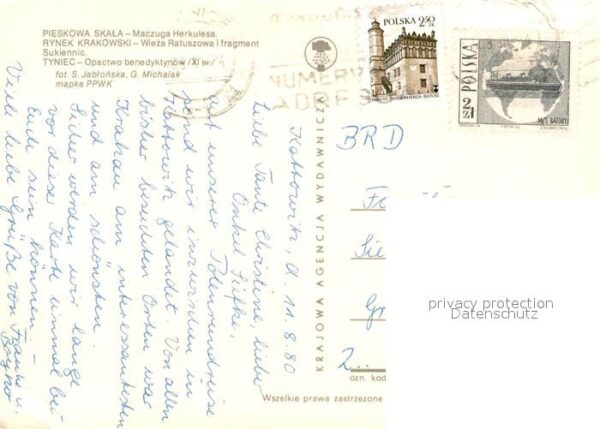 PIESKOWA SKAŁA – Maczuga Herkulesa.
RYNEK KRAKOWSKI – Wieża Ratuszowa i fragment
Sukiennic.
TYNIEC – Opactwo benedyktynów /XI w./
fot. S. Jabłońska, G. Michalak
mapka PPWK
Kattowitz, d. 11.8.80
Liebe Tante Christine, lieber
Onkel
Auf unserer Polenrundreise
sind wir inzwischen in
Kattowitz gelandet. Von allen
bisher besuchten Orten war
Krakau am interessantesten
und am schönsten.
Sicher werden wir lange
vor dieser Karte einmal bei
Euch sein können –
Viele liebe Grüße von Franz u.
KRAJOWA AGENCJA WYDAWNICZA
NUMERY
ADRES
POLSKA 2.50 ZŁ
POLSKA
2 zł
M/S BATORY
BRD
privacy protection
Datenschutz
2..
ozn. kod
Wszelkie prawa zastrzeżone